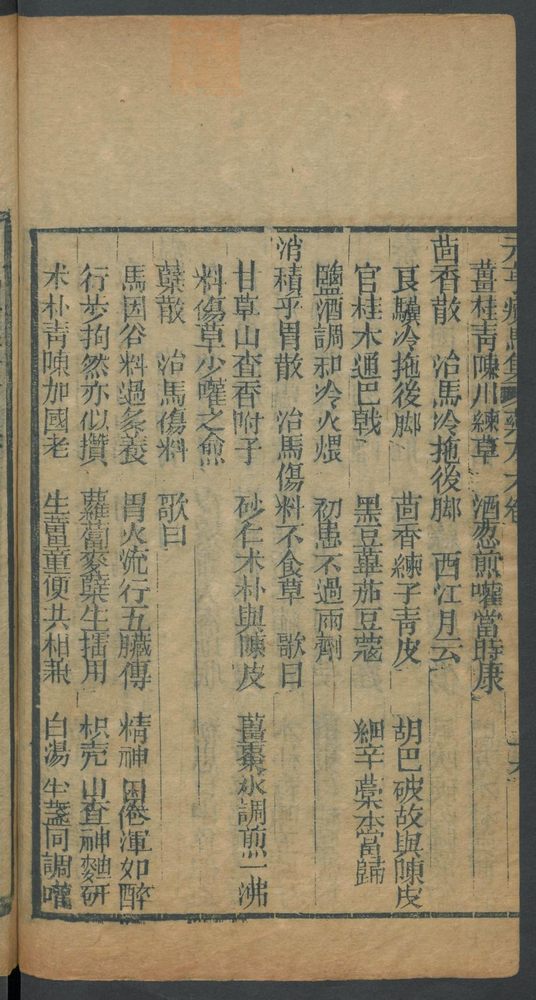 薑桂青陳川練草 酒葱煎嚾當時康
茴香散 治馬冷拖後脚 西江月云
良驥冷拖後脚 茴香練子青皮 胡巴破故與陳皮
官桂木通巴戟 黑豆蓽茄豆蔻 細辛藁本當歸
鹽酒調和冷火煨 初患不過兩劑
消積平胃散 治馬傷料不食草 歌曰
甘草山查香附子 砂仁朮朴與陳皮 薑棗水調煎一沸
料傷草少嚾之愈
蘖散 治馬傷料 歌曰
馬因谷料過多養 胃火流行五臟傳 精神困倦渾如醉
行步拘然亦似攢 蘿蔔麥蘖生擂用 枳壳山查神麯研
朮朴青陳加國老 生薑童便共相兼 白湯 生 同調嚾